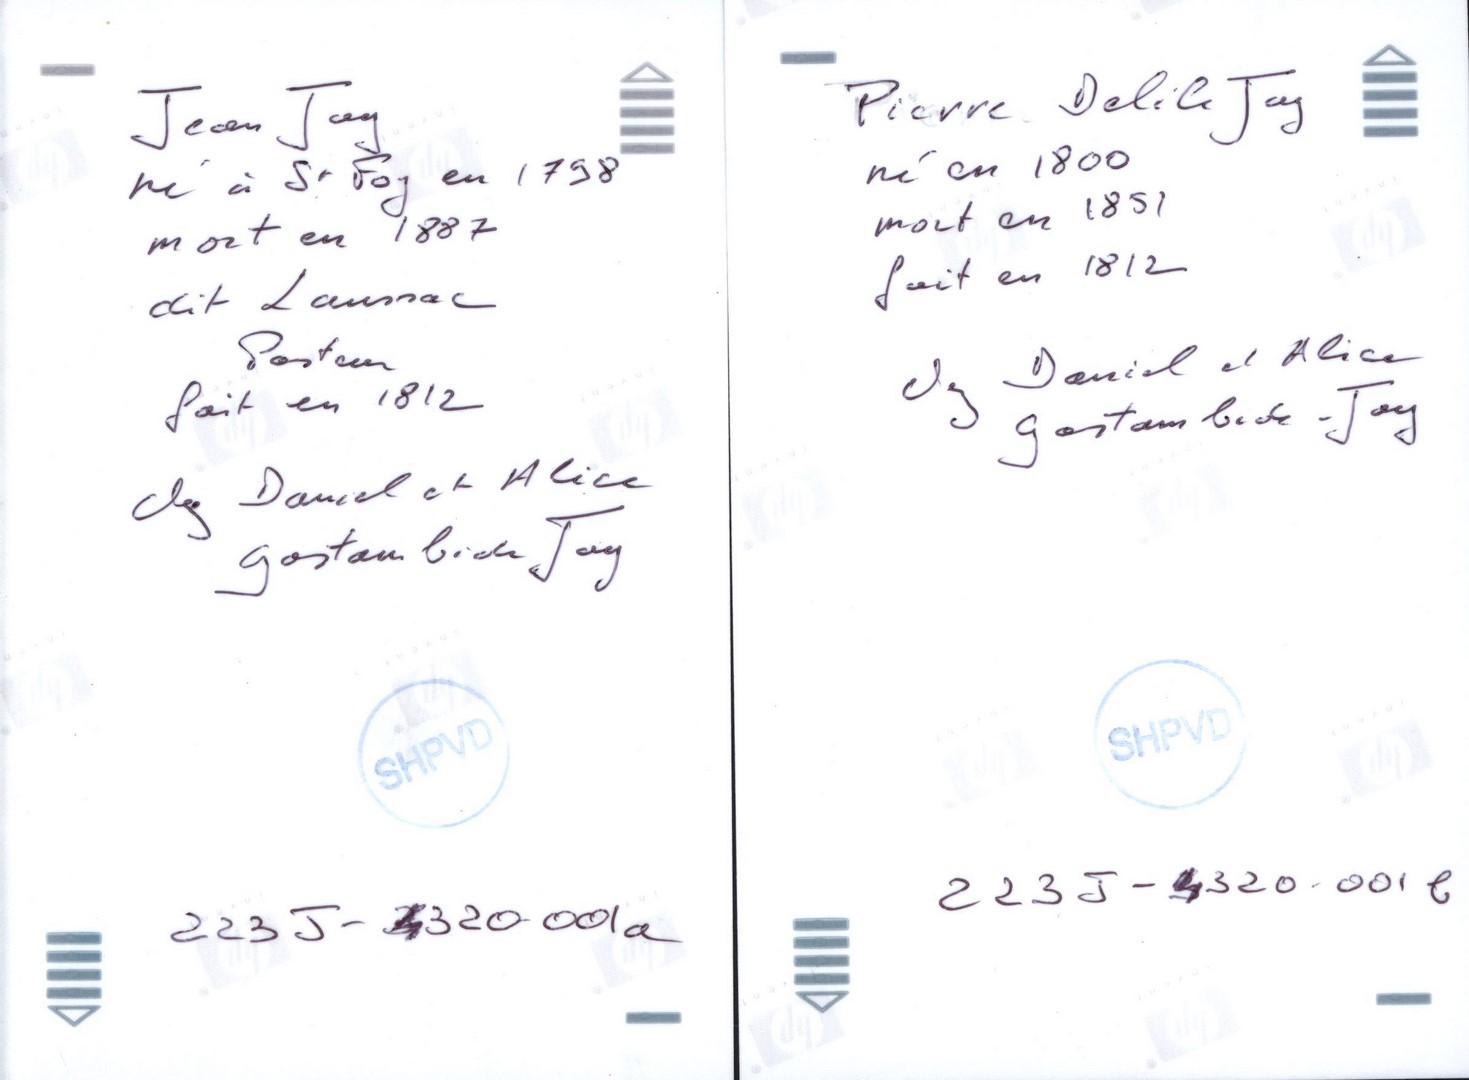 Jean Jay
né à Ste Foy en 1798
mort en 1887
dit Laussac
Pasteur
fait en 1812
chez Daniel et Alice
Gastambide Jay
SHPVD
223 J - 4320-001a
Pierre Delile Jay
né en 1800
mort en 1851
fait en 1812
chez Daniel et Alice
Gastambide - Jay
SHPVD
223 J - 4320-001 b